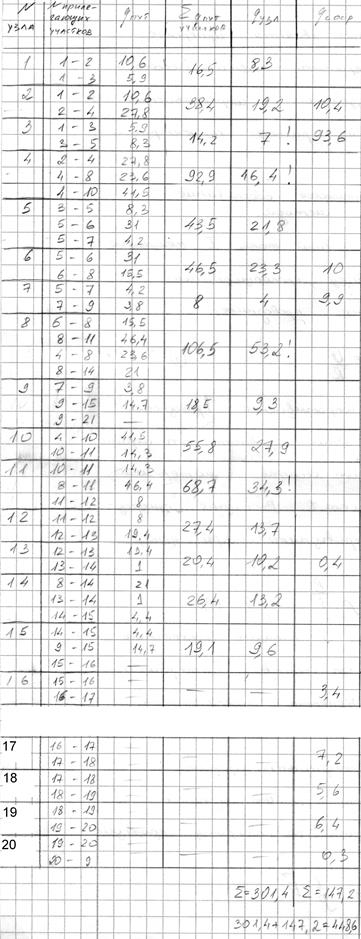 N узла N приле- гающих участков qпут Σ qпут участков qузл qсоср
1 1 - 2 10,6 16,5 8,3
1 - 3 5,9
2 1 - 2 10,6 38,4 19,2 10,4
2 - 4 27,8
3 1 - 3 5.9 14,2 7 ! 93,6
3 - 5 8,3
4 2 - 4 27,8
4 - 8 23,6 92,9 46,4 !
4 - 10 41,5
5 3 - 5 8,3
5 - 6 31 43,5 21,8
5 - 7 4,2
6 5 - 6 31 46,5 23,3 10
6 - 8 15,5
7 5 - 7 4,2 8 4 9,9
7 - 9 3,8
8 6 - 8 15,5
8 - 11 46,4 106,5 53,2 !
4 - 8 23,6
8 - 14 21
9 7 - 9 3,8
9 - 15 14,7 18,5 9,3
9 - 21 —
10 4 - 10 41,5 55,8 27,9
10 - 11 14,3
11 10 - 11 14,3
8 - 11 46,4 68,7 34,3 !
11 - 12 8
12 11 - 12 8 27,4 13,7
12 - 13 19,4
13 12 - 13 19,4 20,4 10,2 0,4
13 - 14 1
14 8 - 14 21
13 - 14 1 26,4 13,2
14 - 15 4,4
15 14 - 15 4,4
9 - 15 14,7 19,1 9,6
15 - 16 —
16 15 - 16 — — — 3,4
16 - 17 —
17 16 - 17 — — — 7,2
17 - 18 —
18 17 - 18 — — — 5,6
18 - 19 —
19 18 - 19 — — — 6,4
19 - 20 —
20 19 - 20 — — — 0,3
20 - 9 —
Σ=301,4 Σ=147,2
301,4+147,2=448,6